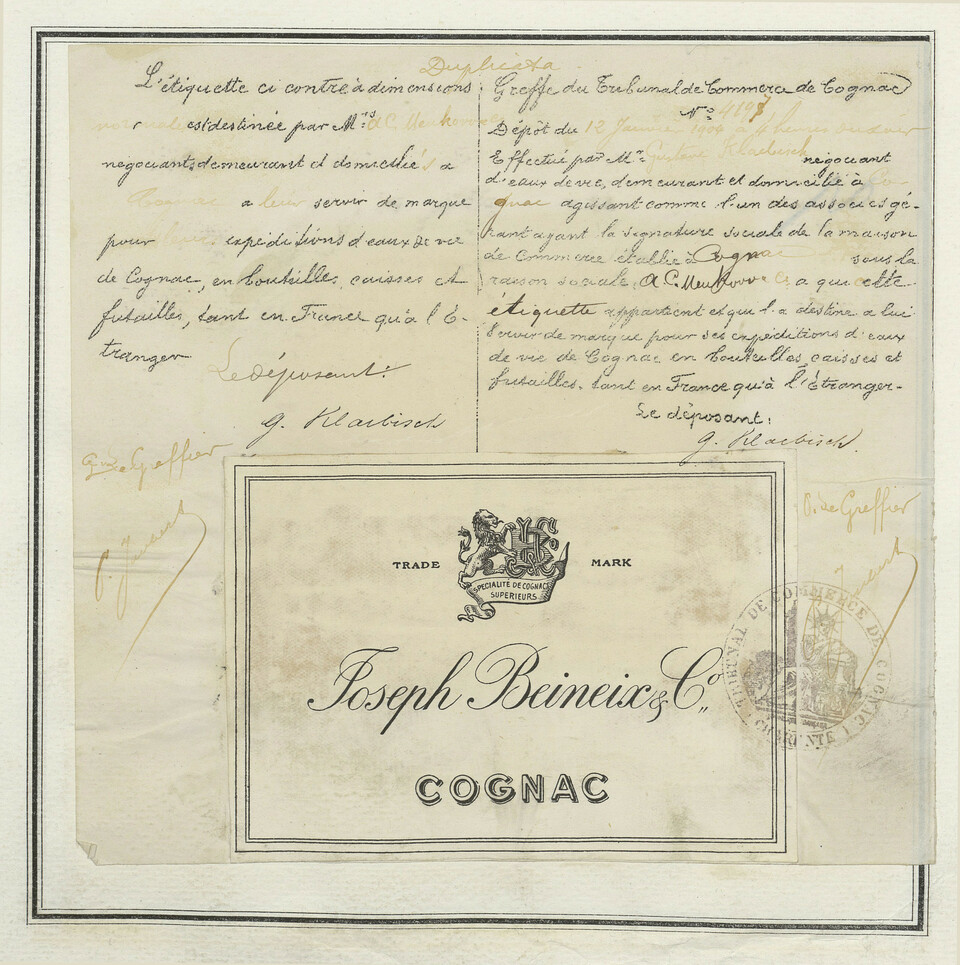 Duplicata
L'étiquette ci contre à dimensions
normales est destinée par M.rs A C Meukow & Co
négociants, demeurant et domiciliés à
Cognac a leur servir de marque
pour leurs expéditions d'eaux de vie
de Cognac, en bouteilles, caisses et
futailles, tant en France qu'à l'É-
tranger
Le déposant:
G. Klaebisch
Greffier
Greffe du Tribunal de Commerce de Cognac
N.o 4197
Dépôt du 12 Janvier 1904 à
Effectué par M.r Gustave Klaebisch négociant
d'eaux de vie, demeurant et domicilié à Co-
gnac agissant comme l'un des associés gé-
rant ayant la signature sociale de la maison
de Commerce établie à Cognac sous la
raison sociale, A C. Meukow & Co a qui cette
étiquette appartient et qui l'a destine a lui
servir de marque pour ses expéditions d'eaux
de vie de Cognac en bouteilles, caisses et
futailles, tant en France qu'à l'Étranger-
Le déposant:
G. Klaebisch.
Greffier
TRADE MARK
HK Co
SPÉCIALITÉ DE COGNACS
SUPERIEURS
Joseph Beineix & Co.,,
COGNAC
TRIBUNAL DE COMMERCE DE COGNAC
CHARENTE